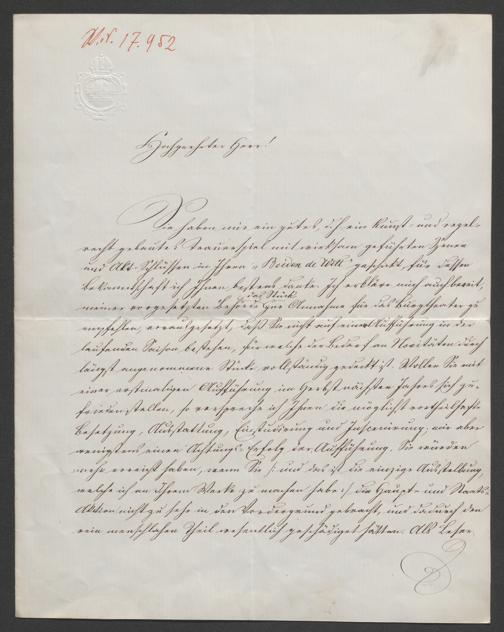 H.N. 17.952
Hochgeehrter Herr!
Sie haben mir ein gutes, d. h. ein kunst- und regel-
recht gebautes Trauerspiel mit wirksam geführten Szenen
und Akt-Schlüssen in Ihren „Brüder de Witt“ geschickt, für dessen
Bekanntschaft ich Ihnen bestens danke. Ich erkläre mich auch bereit,
das Stück
meiner vorgesetzten Behörde zur Annahme für das Burgtheater zu
empfehlen, vorausgesetzt, daß Sie nicht auf einer Aufführung in der
laufenden Saison bestehen, für welche der Bedarf an Novitäten durch
längst angenommene Stücke vollständig gedeckt ist. Wollen Sie mit
einer erstmaligen Aufführung im Herbst nächsten Jahres sich zu-
frieden stellen, so verspreche ich Ihnen die möglichst vortheilhafte
Besetzung, Ausstattung, Einstudirung und Inscenirung, wie aber
wenigstens einen Achtungs-Erfolg der Aufführung. Sie würden
mehr erreicht haben, wenn Sie /: und das ist die einzige Ausstellung
welche ich an Ihrem Werke zu machen habe :/ die Haupt- und Staats-
Aktion nicht zu sehr in den Vordergrund gebracht, und dadurch den
rein menschlichen Theil wesentlich geschädigt hätten. Als Lehre